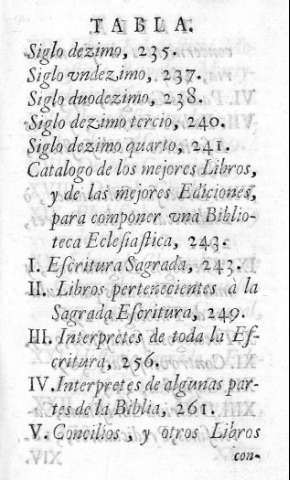 TABLA.
Siglo dezimo, 235.
Siglo vndezimo, 237.
Siglo duodezimo, 238.
Siglo dezimo tercio, 240.
Siglo dezimo quarto, 241.
Catalogo de los mejores Libros,
y de las mejores Ediciones,
para componer vna Biblio-
teca Eclesiaſtica, 243.
I. Eſcritura Sagrada, 243.
II. Libros pertenecientes à la
Sagrada Eſcritura, 249.
III. Interpretes de toda la Eſ-
critura, 256.
IV. Interpretes de algunas par-
tes de la Biblia, 261.
V. Concilios, y otros Libros
con-